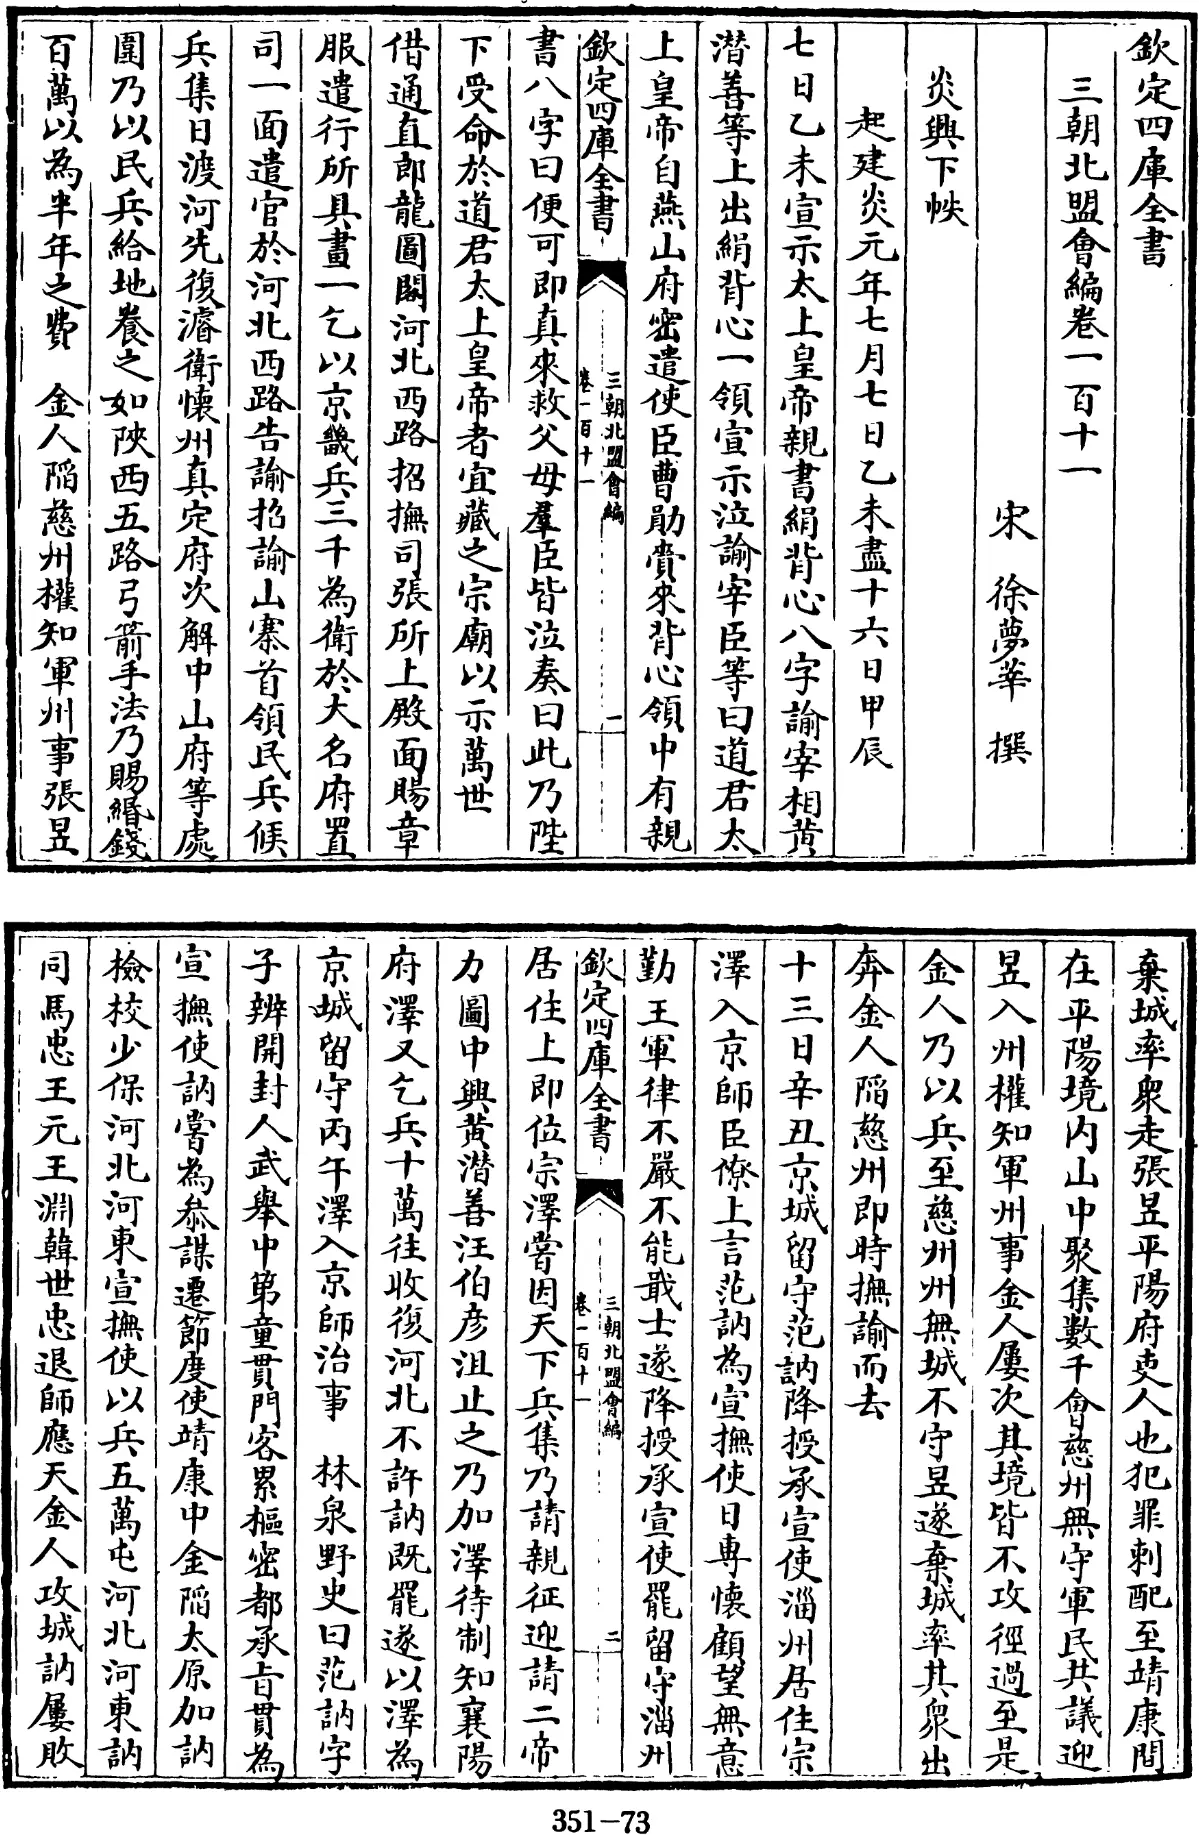 欽定四庫全書
三朝北盟會編卷一百十一
宋 徐夢莘 撰
炎興下帙
起建炎元年七月七日乙未盡十六日甲辰
七日乙未宣示太上皇帝親書絹背心八字諭宰相黄
潛善等上出絹背心一領宣示泣諭宰臣等曰道君太
上皇帝自燕山府密遣使臣曹勛賫來背心領中有親
欽定四庫全書
三朝北盟會編
卷一百十一
一
書八字曰便可即真來救父母羣臣皆泣奏曰此乃陛
下受命於道君太上皇帝者宜藏之宗廟以示萬世
借通直郎龍圖閣河北西路招撫司張所上殿面賜章
服遣行所具畫一乞以京畿兵三千為衛於大名府置
司一面遣官於河北西路告諭招諭山寨首領民兵候
兵集日渡河先復濬衛懷州真定府次解中山府等處
圍乃以民兵給地養之如陜西五路弓箭手法乃賜緡錢
百萬以為半年之費 金人陷慈州權知軍州事張昱
棄城率衆走張昱平陽府吏人也犯罪刺配至靖康間
在平陽境内山中聚集數千會慈州無守軍民共議迎
昱入州權知軍州事金人屢次其境皆不攻徑過至是
金人乃以兵至慈州州無城不守昱遂棄城率其衆出
奔金人陷慈州即時撫諭而去
十三日辛丑京城留守范訥降授承宣使淄州居住宗
澤入京師臣僚上言范訥為宣撫使日專懷顧望無意
勤王軍律不嚴不能戢士遂降授承宣使罷留守淄州
欽定四庫全書
三朝北盟會編
卷一百十一
二
居住上即位宗澤嘗因天下兵集乃請親征迎請二帝
力圖中興黄潛善汪伯彦沮止之乃加澤待制知襄陽
府澤又乞兵十萬往收復河北不許訥既罷遂以澤為
京城留守丙午澤入京師治事 林泉野史曰范訥字
子辨開封人武舉中第童貫門客累樞密都承旨貫為
宣撫使訥嘗為叅謀遷節度使靖康中金陷太原加訥
檢校少保河北河東宣撫使以兵五萬屯河北河東訥
同馬忠王元王淵韓世忠退師應天金人攻城訥屢敗
351-73